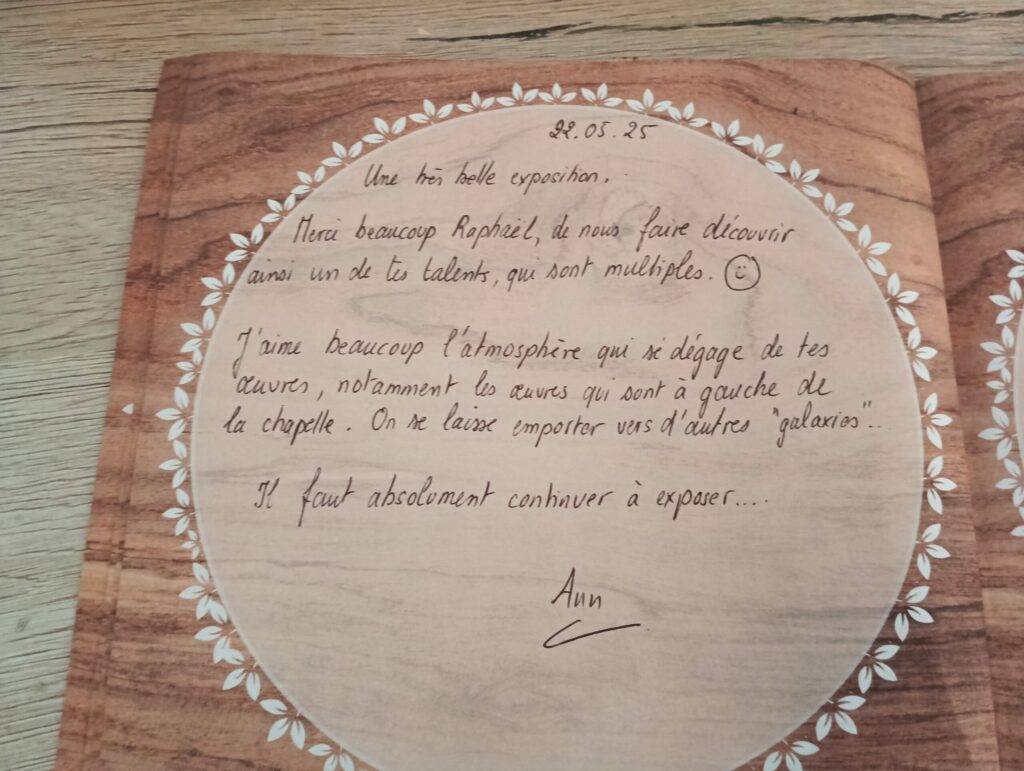 22.05.25
Une très belle exposition.
Merci beaucoup Raphaël, de nous faire découvrir
ainsi un de tes talents, qui sont multiples. ☺
J'aime beaucoup l'atmosphère qui se dégage de tes
œuvres, notamment les œuvres qui sont à gauche de
la chapelle. On se laisse emporter vers d'autres "galaxies"..
Il faut absolument continuer à exposer....
Ann